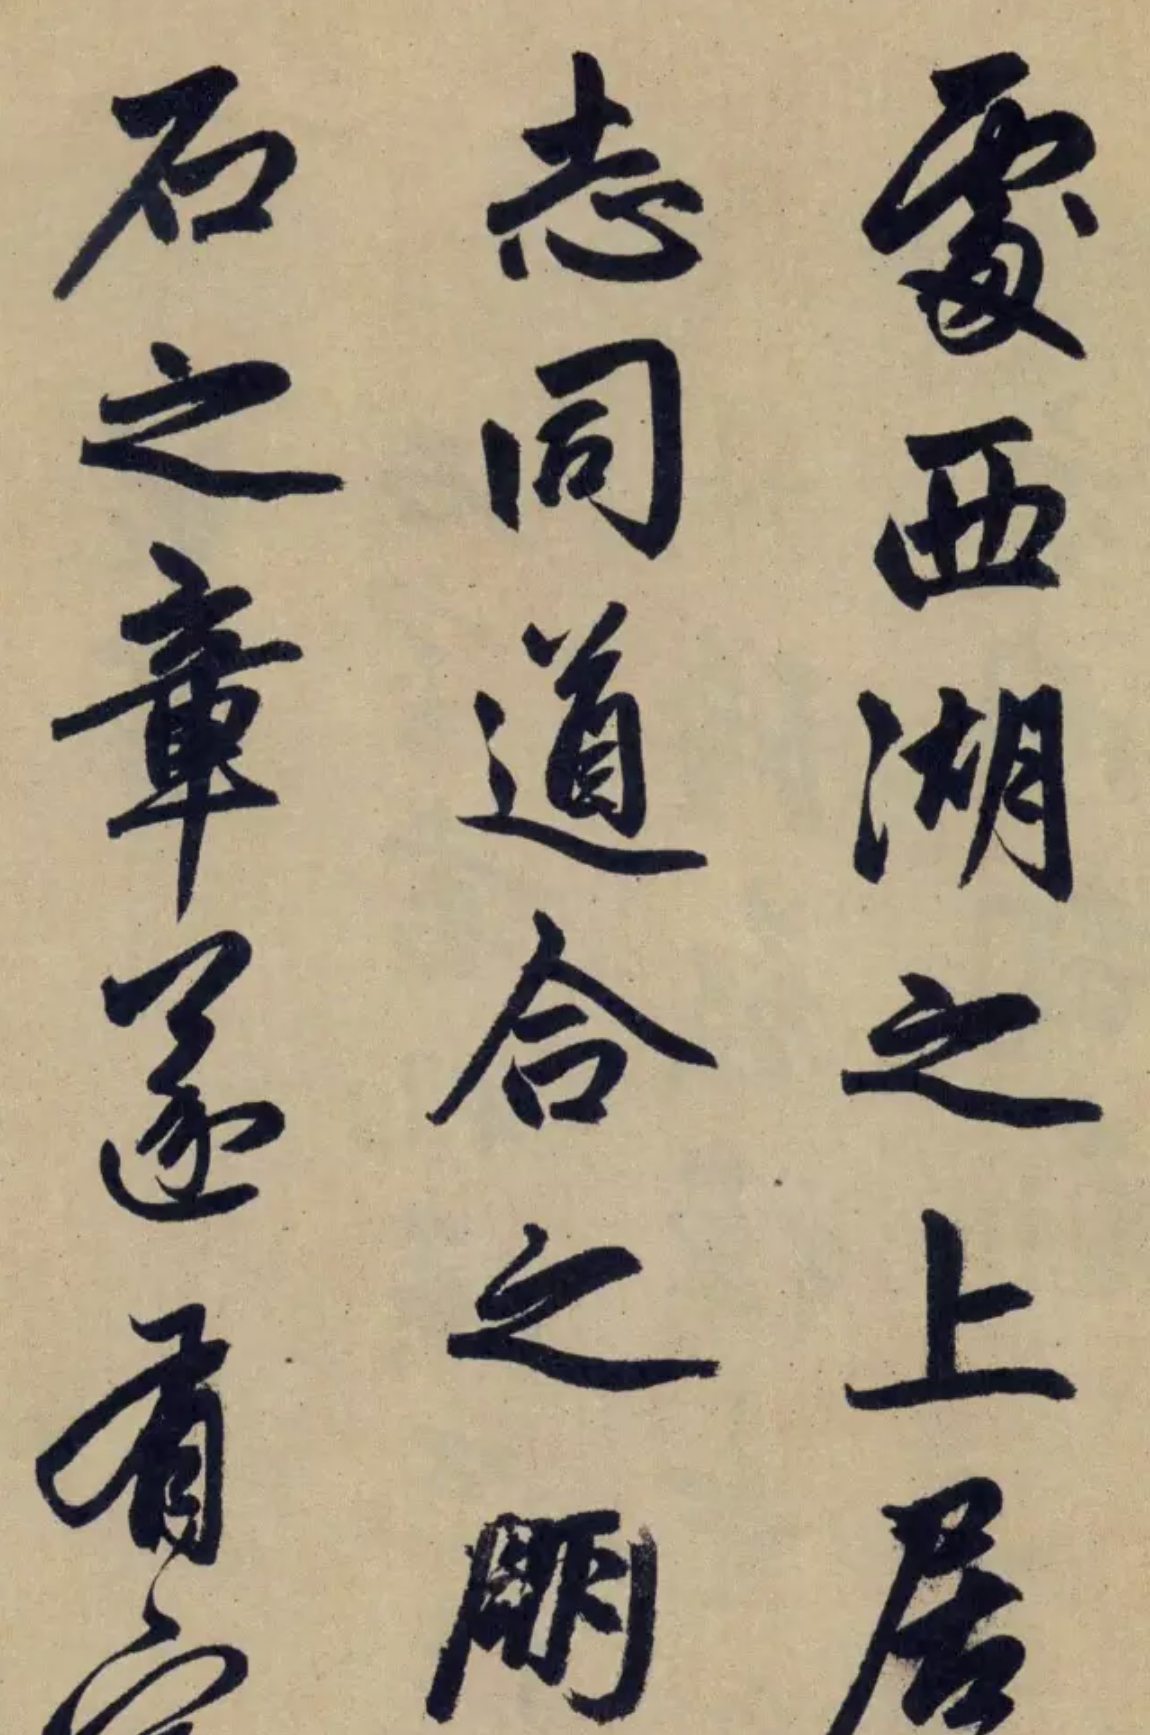 處西湖之上居
志同道合之朋
石之章遂有